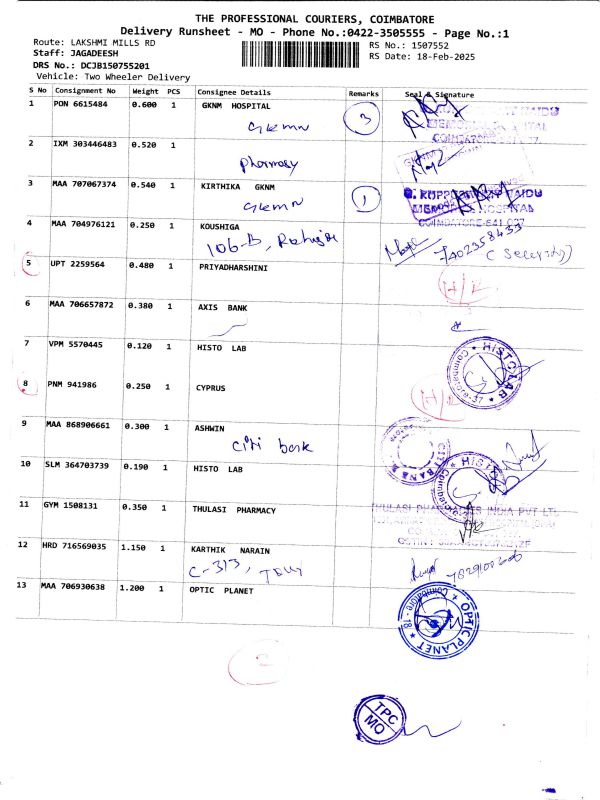 THE PROFESSIONAL COURIERS, COIMBATORE
Delivery Runsheet - MO - Phone No.:0422-3505555 - Page No.:1
Route: LAKSHMI MILLS RD
RS No.: 1507552
Staff: JAGADEESH
RS Date: 18-Feb-2025
DRS No.: DCJB150755201
Vehicle: Two Wheeler Delivery
S No Consignment No Weight PCS Consignee Details Remarks Seal & Signature
1 PON 6615484 0.600 1 GKNM HOSPITAL
GKMN 3
2 IXM 303446483 0.520 1
Pharmacy
3 MAA 707067374 0.540 1 KIRTHIKA GKNM
GKMN 1
G. KUPPUSWAMY NAIDU
MEMORIAL HOSPITAL
COIMBATORE-641 037
4 MAA 704976121 0.250 1 KOUSHIGA
106-B,
5 UPT 2259564 0.480 1 PRIYADHARSHINI
6 MAA 706657872 0.380 1 AXIS BANK
7 VPM 5570445 0.120 1 HISTO LAB
HISTO LAB
Coimbatore-37
8 PNM 941986 0.250 1 CYPRUS
9 MAA 868906661 0.300 1 ASHWIN
Citi bank
CITI BANK
10 SLM 364703739 0.190 1 HISTO LAB
HISTO
11 GYM 1508131 0.350 1 THULASI PHARMACY
THULASI PHARMACIES INDIA PVT LTD
12 HRD 716569035 1.150 1 KARTHIK NARAIN
C-313,
13 MAA 706930638 1.200 1 OPTIC PLANET
OPTIC PLANET
Coimbatore - 18
2
TPC
MO